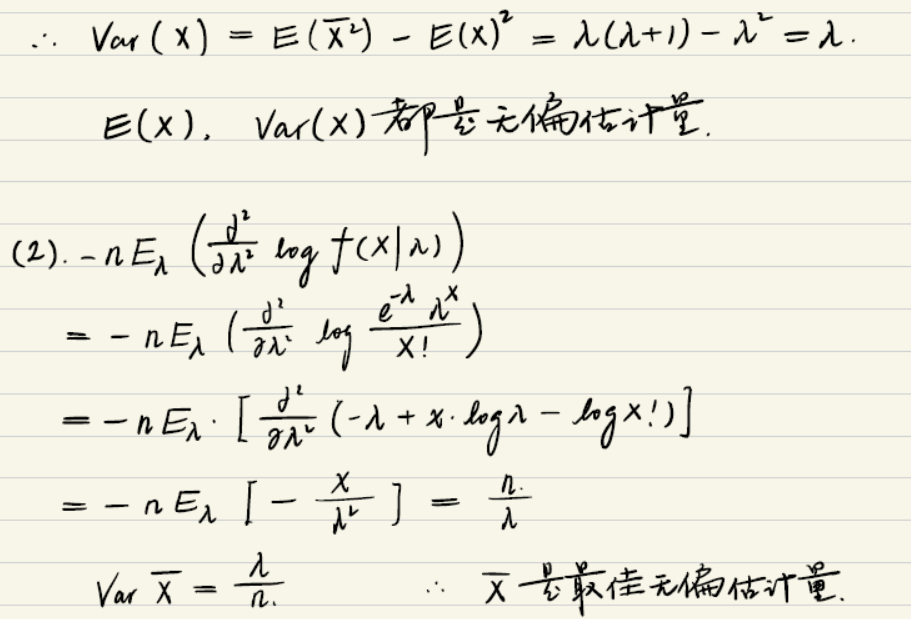 ∴ Var(X) = E(X̅²) - E(X)² = λ(λ+1) - λ² = λ.
E(X). Var(X) 都是无偏估计量.
(2). -n E_λ (∂²/∂λ² log f(X|λ))
= -n E_λ (∂²/∂λ² log (e^{-λ} λ^X)/X!)
= -n E_λ · [∂²/∂λ² (-λ + x·logλ - logX!)]
= -n E_λ [-X/λ²] = n./λ
Var X̅ = λ/n. ∴ X̅ 是最佳无偏估计量.